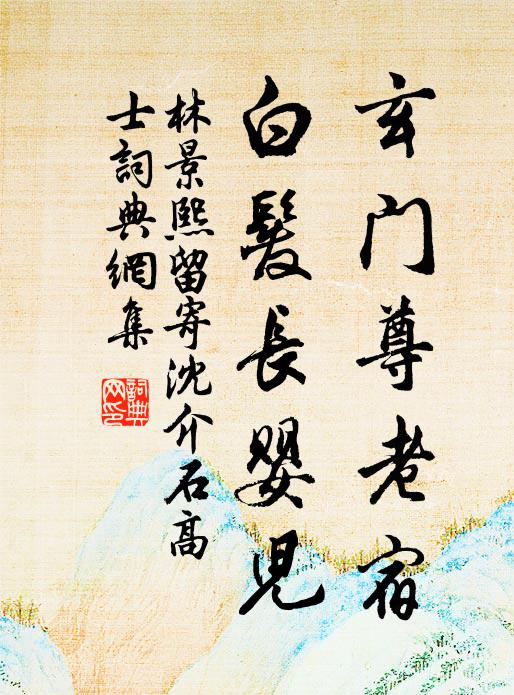 玄門尊老宿
白髮長嬰児
林景熙留寄沈介石高
士詞典網集
詞典网印